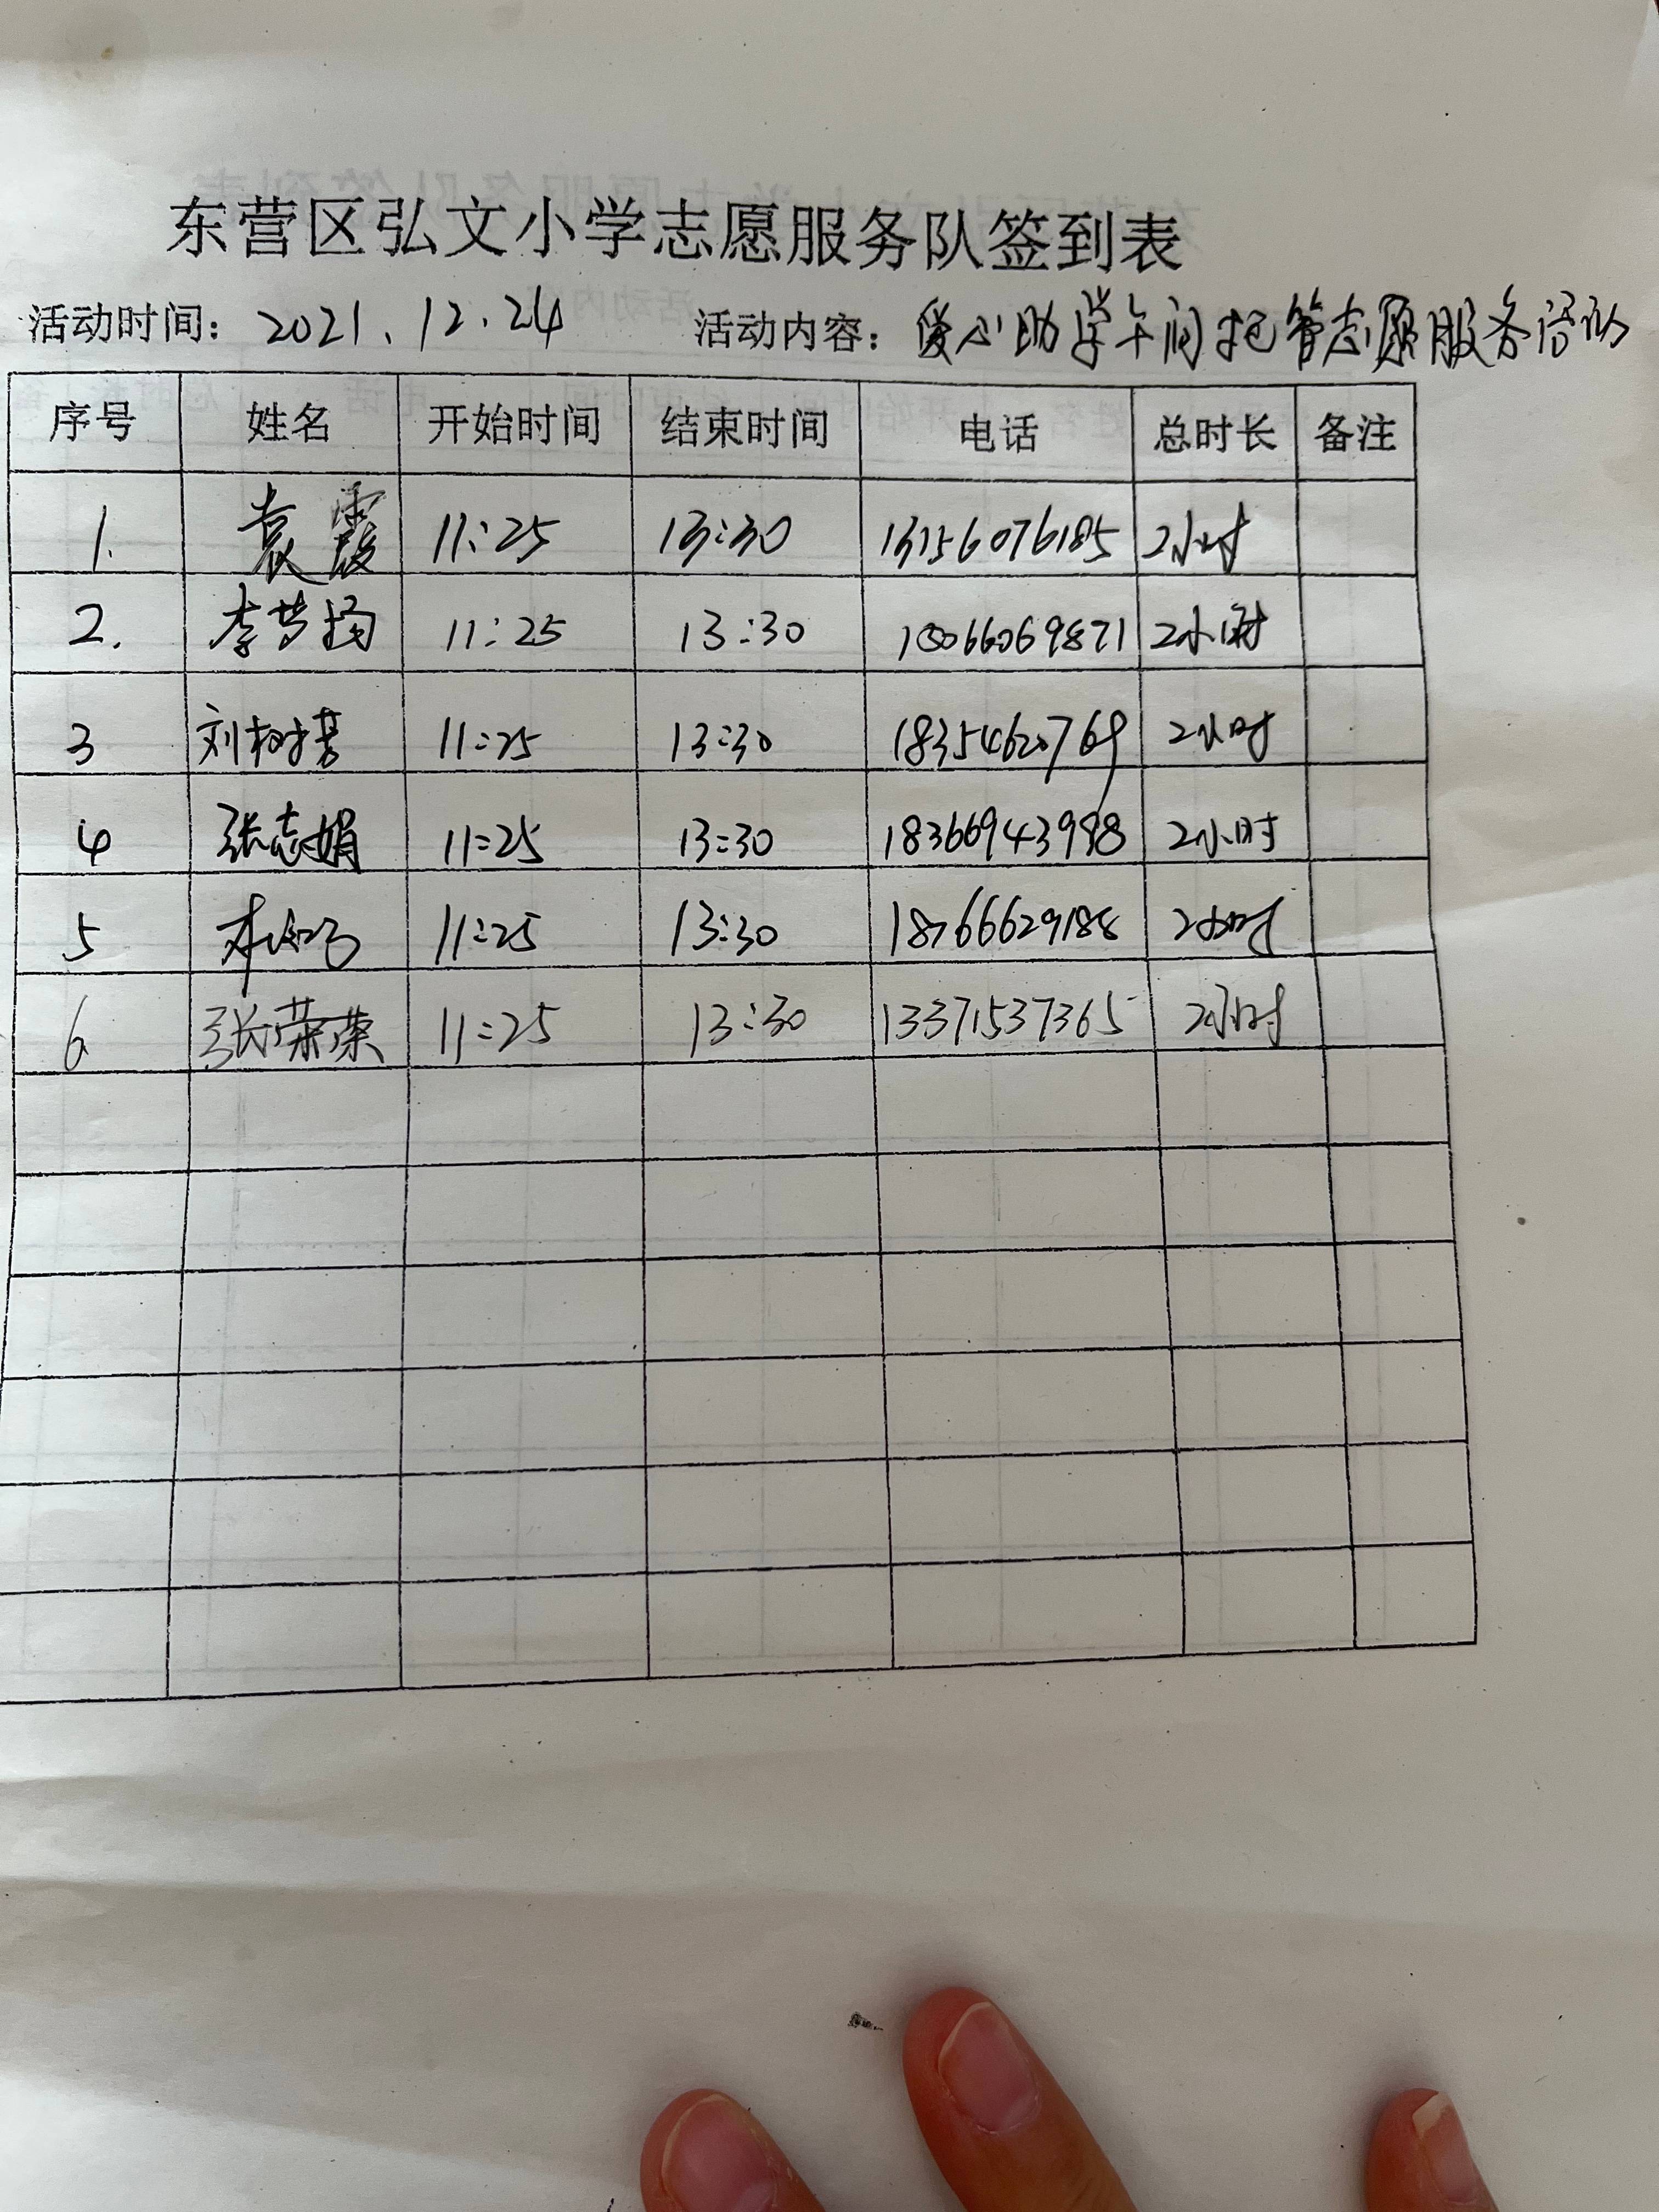 东营区弘文小学志愿服务队签到表
活动时间：2021.12.24 活动内容：爱心助学午间托管志愿服务活动
序号 姓名 开始时间 结束时间 电话 总时长 备注
1. 袁霞 11:25 13:30 13156076185 2小时
2. 李梦扬 11:25 13:30 15066069871 2小时
3 刘树芳 11:25 13:30 18354620769 2小时
4 张志娟 11:25 13:30 18366943998 2小时
5 11:25 13:30 18766629188 2小时
6 张荣荣 11:25 13:30 13371537365 2小时